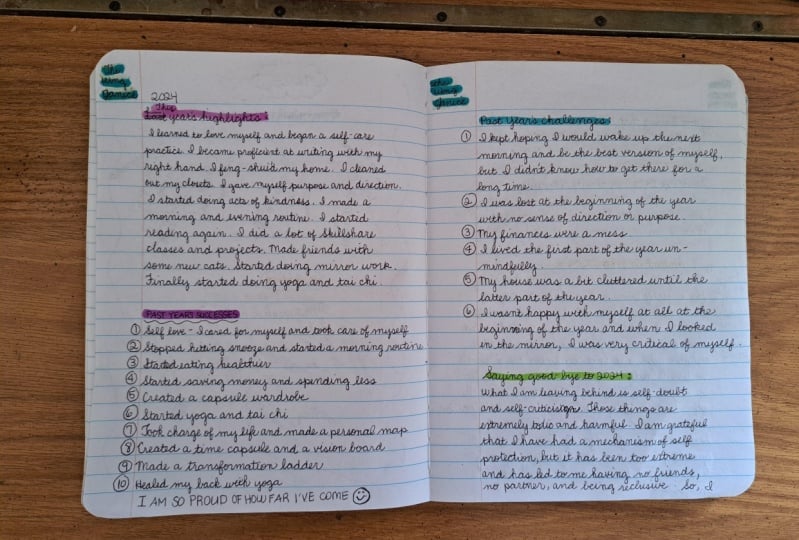 The
Wong
Janice
2024
This
Last years highlights:
I learned to love myself and began a self-care
practice. I became proficient at writing with my
right hand. I feng-shuid my home. I cleaned
out my closets. I gave myself purpose and direction.
I started doing acts of kindness. I made a
morning and evening routine. I started
reading again. I did a lot of Skillshare
classes and projects. Made friends with
some new cats. Started doing mirror work.
Finally started doing yoga and tai chi.
PAST YEAR'S SUCCESSES
① Self love - I cared for myself and took care of myself
② Stopped hitting snooze and started a morning routine
③ Started eating healthier
④ Started saving money and spending less
⑤ Created a capsule wardrobe
⑥ Started yoga and tai chi
⑦ Took charge of my life and made a personal map
⑧ Created a time capsule and a vision board
⑨ Made a transformation ladder
⑩ Healed my back with yoga
I AM SO PROUD OF HOW FAR I'VE COME ☺
the
Janice
Past Year's challenges:
① I kept hoping I would wake up the next
morning and be the best version of myself,
but I didn't know how to get there for a
long time.
② I was lost at the beginning of the year
with no sense of direction or purpose.
③ My finances were a mess.
④ I lived the first part of the year un-
mindfully.
⑤ My house was a bit cluttered until the
latter part of the year.
⑥ I wasn't happy with myself at all at the
beginning of the year and when I looked
in the mirror, I was very critical of myself.
Saying good-bye to 2024:
What I am leaving behind is self-doubt
and self-criticism. These things are
extremely toxic and harmful. I am grateful
that I have had a mechanism of self
protection, but it has been too extreme
and has led to me having no friends,
no partner, and being reclusive. So, I